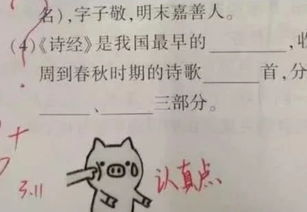 名),字子敬,明末嘉善人。
(4)《诗经》是我国最早的______,收
周到春秋时期的诗歌______首,分
______、______三部分。
认真点
3.11